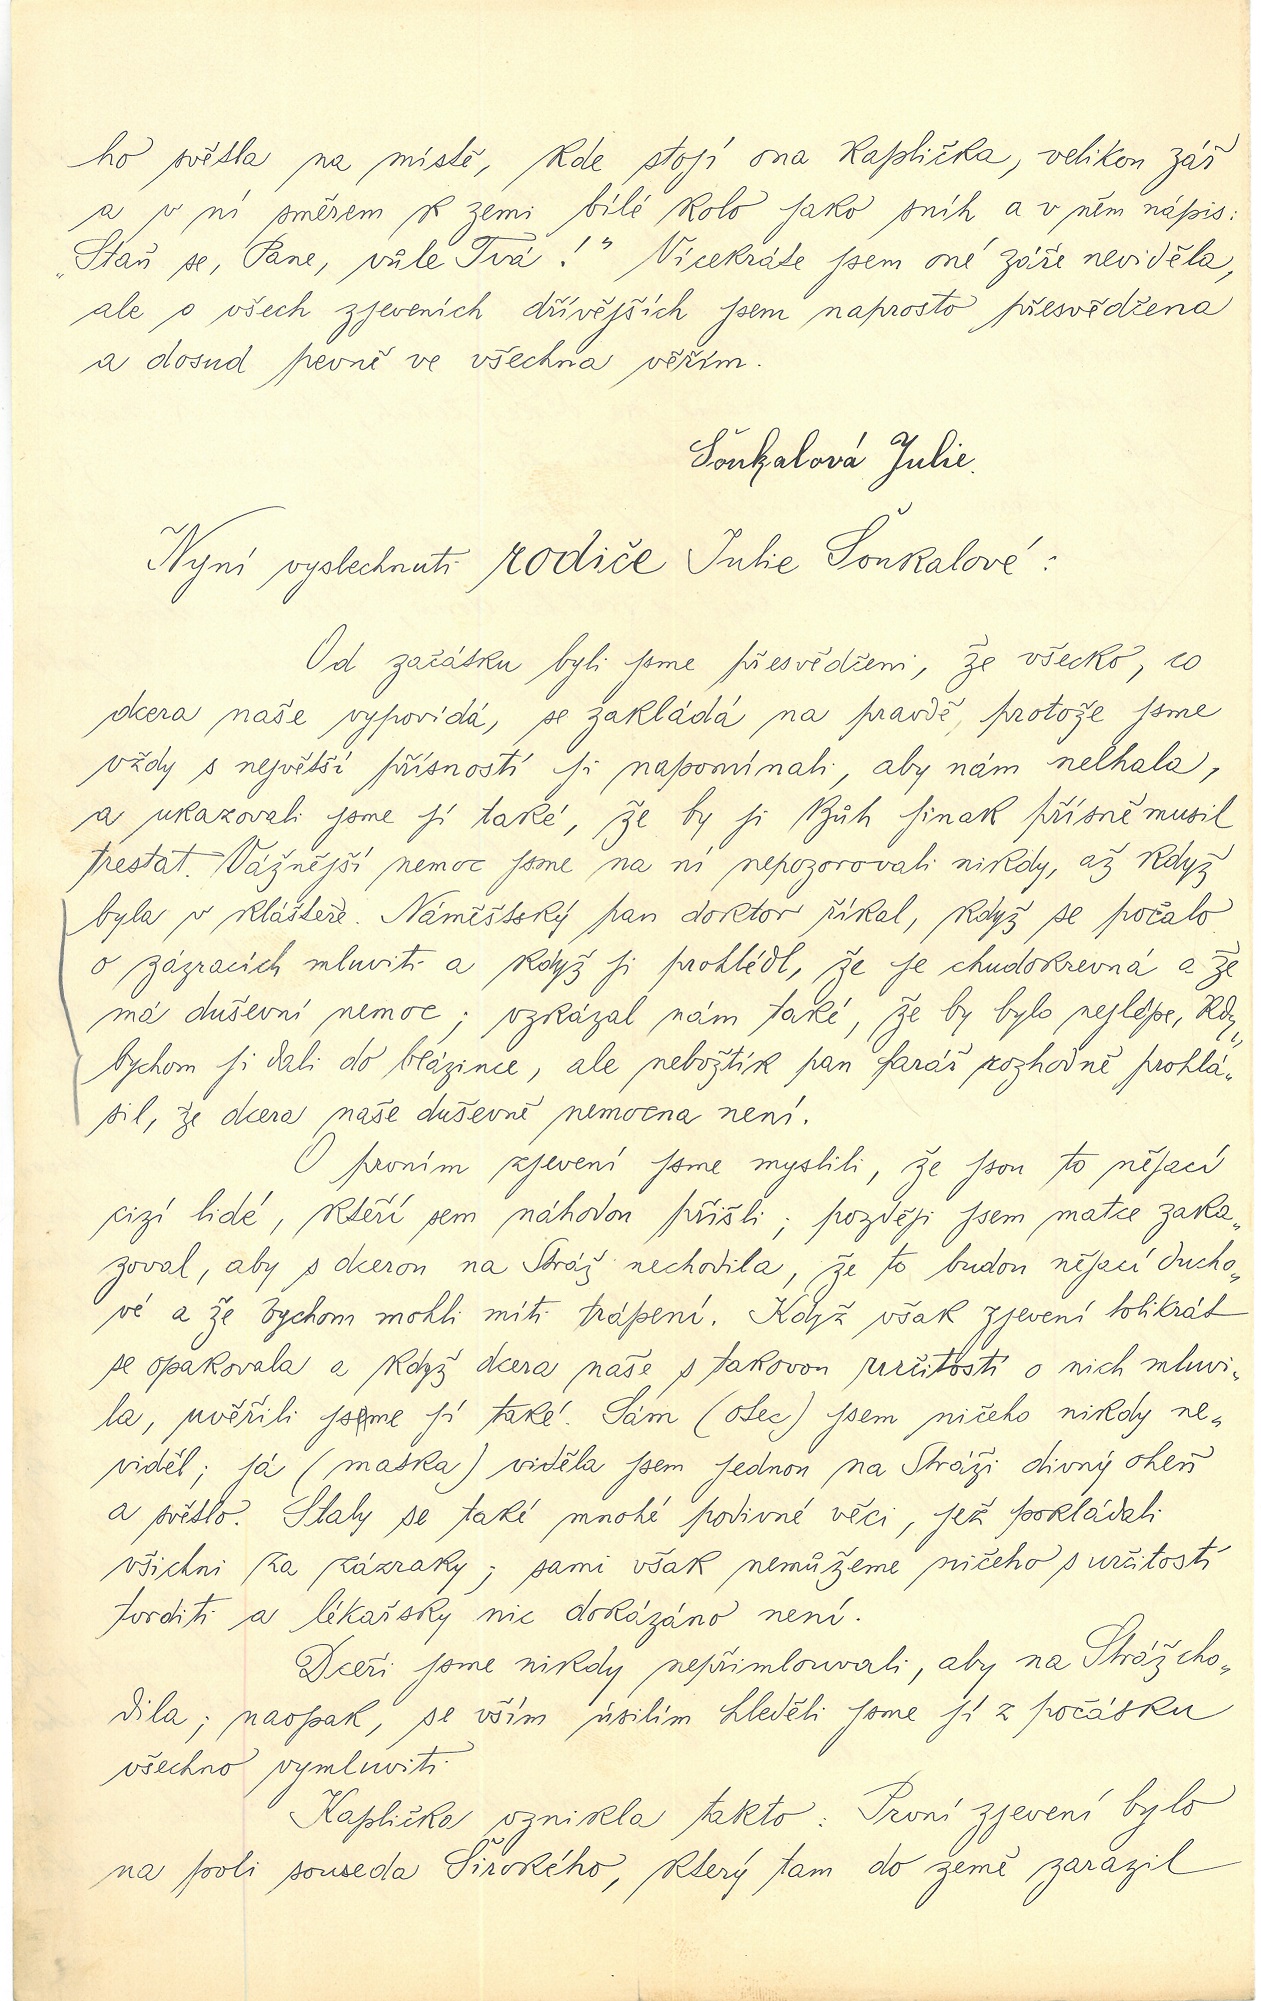 ho světla na místě, kde stojí ona kaplička, velikou zář
a v ní směrem k zemi bílé kolo jako sníh a v něm nápis:
„Staň se, Pane, vůle Tvá!" Vícekráte jsem oné záře neviděla,
ale o všech zjeveních dřívějších jsem naprosto přesvědčena
a dosud pevně ve všechna věřím.
Šoukalová Julie.
Nyní vyslechnuti rodiče Julie Šoukalové:
Od začátku byli jsme přesvědčeni, že všecko, co
dcera naše vypovídá, se zakládá na pravdě, protože jsme
vždy s největší přísností ji napomínali, aby nám nelhala,
a ukazovali jsme jí také, že by ji Bůh jinak přísně musil
trestat. Vážnější nemoc jsme na ní nepozorovali nikdy, až když
byla v klášteře. Náměštský pan doktor říkal, když se počalo
o zázracích mluviti a když ji prohlédl, že je chudokrevná a že
má duševní nemoc; vzkázal nám také, že by bylo nejlépe, kdy„
bychom ji dali do blázince, ale nebožtík pan farář rozhodně prohlá„
sil, že dcera naše duševně nemocna není.
O prvním zjevení jsme myslili, že jsou to nějací
cizí lidé, kteří sem náhodou přišli; později jsem matce zaka„
zoval, aby s dcerou na Stráž nechodila, že to budou nějací ducho„
vé a že bychom mohli míti trápení. Když však zjevení tolikrát
se opakovala a když dcera naše s takovou určitostí o nich mluvi„
la, uvěřili jsme jí také. Sám (otec) jsem ničeho nikdy ne„
viděl; já (matka) viděla jsem jednou na Stráži divný oheň
a světlo. Staly se také mnohé podivné věci, jež pokládali
všichni za zázraky; sami však nemůžeme ničeho s určitostí
tvrditi a lékařsky nic dokázáno není.
Dceři jsme nikdy nepřimlouvali, aby na Stráž cho„
dila; naopak, se vším úsilím hleděli jsme jí z počátku
všechno vymluviti.
Kaplička vznikla takto: První zjevení bylo
na poli souseda Širokého, který tam do země zarazil